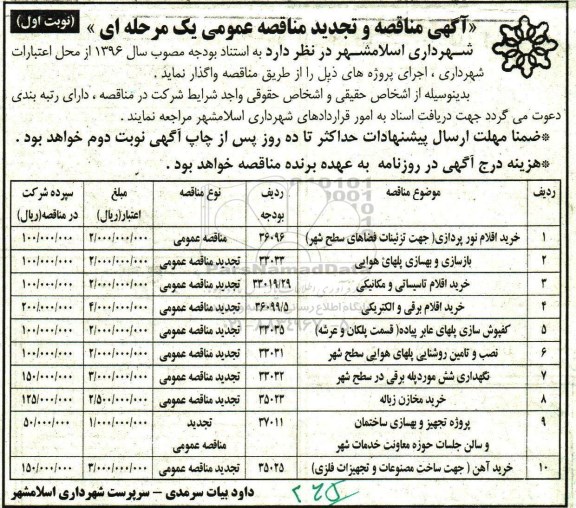 (نوبت اول)
«آگهی مناقصه و تجدید مناقصه عمومی یک مرحله ای»
شهرداری اسلامشهر در نظر دارد به استناد بودجه مصوب سال ۱۳۹۶ از محل اعتبارات
شهرداری ، اجرای پروژه های ذیل را از طریق مناقصه واگذار نماید .
بدینوسیله از اشخاص حقیقی و اشخاص حقوقی واجد شرایط شرکت در مناقصه ، دارای رتبه بندی
دعوت می گردد جهت دریافت اسناد به امور قراردادهای شهرداری اسلامشهر مراجعه نمایند .
*ضمنا مهلت ارسال پیشنهادات حداکثر تا ده روز پس از چاپ آگهی نوبت دوم خواهد بود .
*هزینه درج آگهی در روزنامه به عهده برنده مناقصه خواهد بود .
ردیف موضوع مناقصه ردیف بودجه نوع مناقصه مبلغ اعتبار(ریال) سپرده شرکت در مناقصه(ریال)
۱ خرید اقلام نور پردازی( جهت تزئینات فضاهای سطح شهر) ۳۶۰۹۶ مناقصه عمومی ۲/۰۰۰/۰۰۰/۰۰۰ ۱۰۰/۰۰۰/۰۰۰
۲ بازسازی و بهسازی پلهای هوایی ۳۳۰۳۳ تجدید مناقصه عمومی ۲/۰۰۰/۰۰۰/۰۰۰ ۱۰۰/۰۰۰/۰۰۰
۳ خرید اقلام تاسیساتی و مکانیکی ۳۳۰۱۹/۲۹ تجدید مناقصه عمومی ۲/۰۰۰/۰۰۰/۰۰۰ ۱۰۰/۰۰۰/۰۰۰
۴ خرید اقلام برقی و الکتریکی ۳۶۰۹۹/۵ تجدید مناقصه عمومی ۴/۰۰۰/۰۰۰/۰۰۰ ۲۰۰/۰۰۰/۰۰۰
۵ کفپوش سازی پلهای عابر پیاده( قسمت پلکان و عرشه) ۳۳۰۳۵ تجدید مناقصه عمومی ۲/۰۰۰/۰۰۰/۰۰۰ ۱۰۰/۰۰۰/۰۰۰
۶ نصب و تامین روشنایی پلهای هوایی سطح شهر ۳۳۰۳۱ تجدید مناقصه عمومی ۲/۰۰۰/۰۰۰/۰۰۰ ۱۰۰/۰۰۰/۰۰۰
۷ نگهداری شش موردپله برقی در سطح شهر ۳۳۰۳۲ تجدید مناقصه عمومی ۳/۰۰۰/۰۰۰/۰۰۰ ۱۵۰/۰۰۰/۰۰۰
۸ خرید مخازن زباله ۳۵۰۲۳ تجدید مناقصه عمومی ۲/۵۰۰/۰۰۰/۰۰۰ ۱۲۵/۰۰۰/۰۰۰
۹ پروژه تجهیز و بهسازی ساختمان و سالن جلسات حوزه معاونت خدمات شهر ۳۷۰۱۱ تجدید مناقصه عمومی ۱/۰۰۰/۰۰۰/۰۰۰ ۵۰/۰۰۰/۰۰۰
۱۰ خرید آهن ( جهت ساخت مصنوعات و تجهیزات فلزی) ۳۵۰۲۵ تجدید مناقصه عمومی ۳/۰۰۰/۰۰۰/۰۰۰ ۱۵۰/۰۰۰/۰۰۰
داود بیات سرمدی – سرپرست شهرداری اسلامشهر
ParsNamadData